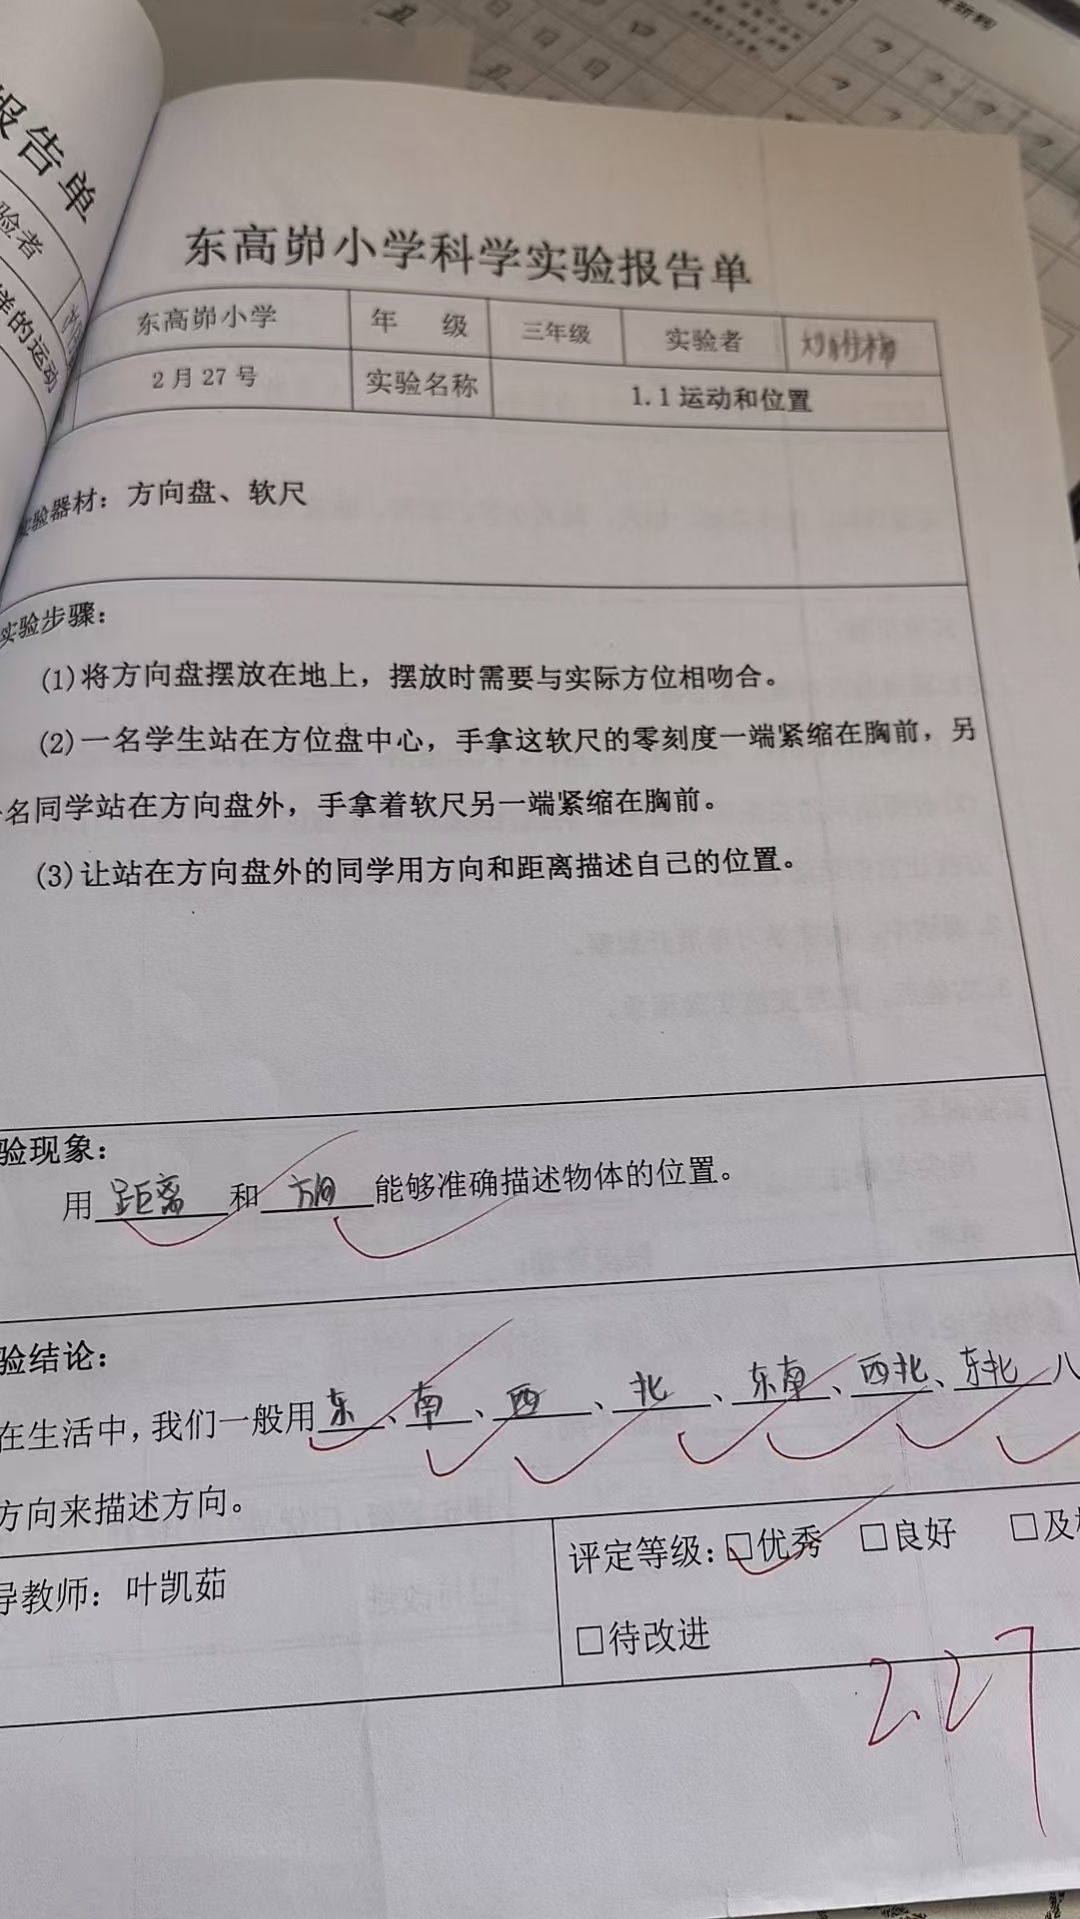 报告单
验者
样的运动
东高峁小学科学实验报告单
东高峁小学 年 级 三年级 实验者
2月27号 实验名称 1.1运动和位置
实验器材：方向盘、软尺
实验步骤：
(1)将方向盘摆放在地上，摆放时需要与实际方位相吻合。
(2)一名学生站在方位盘中心，手拿这软尺的零刻度一端紧缩在胸前，另
一名同学站在方向盘外，手拿着软尺另一端紧缩在胸前。
(3)让站在方向盘外的同学用方向和距离描述自己的位置。
验现象：
用 距离 和 方向 能够准确描述物体的位置。
验结论：
在生活中，我们一般用 东、南、西、北、东南、西北、东北 八
方向来描述方向。
导教师：叶凯茹 评定等级：□优秀 □良好 □及
□待改进
2.27